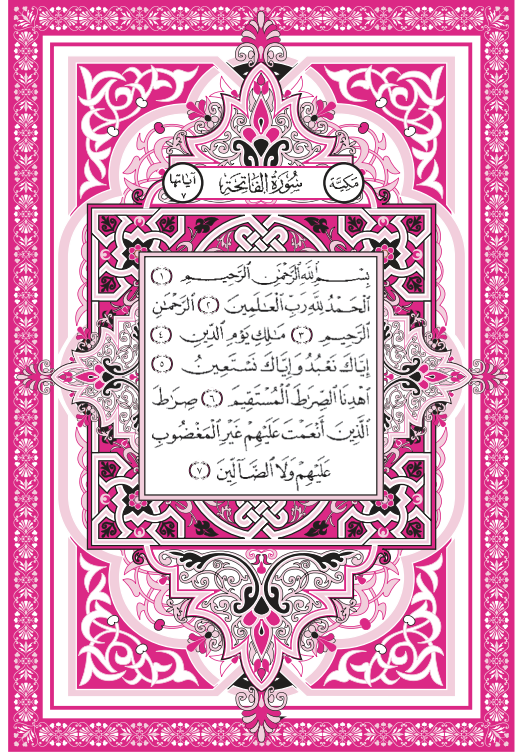 مكية سورة الفاتحة آياتها ٧
بِسْمِ ٱللَّهِ ٱلرَّحْمَٰنِ ٱلرَّحِيمِ ۝١
ٱلْحَمْدُ لِلَّهِ رَبِّ ٱلْعَٰلَمِينَ ۝٢ ٱلرَّحْمَٰنِ
ٱلرَّحِيمِ ۝٣ مَٰلِكِ يَوْمِ ٱلدِّينِ ۝٤
إِيَّاكَ نَعْبُدُ وَإِيَّاكَ نَسْتَعِينُ ۝٥
ٱهْدِنَا ٱلصِّرَٰطَ ٱلْمُسْتَقِيمَ ۝٦ صِرَٰطَ
ٱلَّذِينَ أَنْعَمْتَ عَلَيْهِمْ غَيْرِ ٱلْمَغْضُوبِ
عَلَيْهِمْ وَلَا ٱلضَّآلِّينَ ۝٧